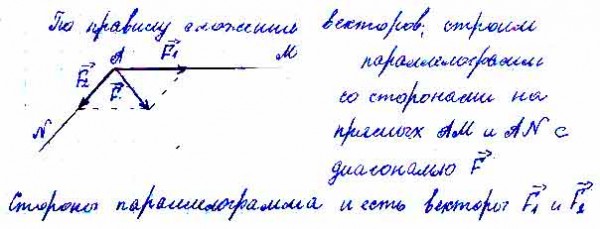 По правилу сложения векторов, строим
параллелограмм
со сторонами на
прямых AM и AN с
диагональю F⃗
A F⃗₁ M
F⃗₂ F⃗
N
Стороны параллелограмма и есть векторы F⃗₁ и F⃗₂